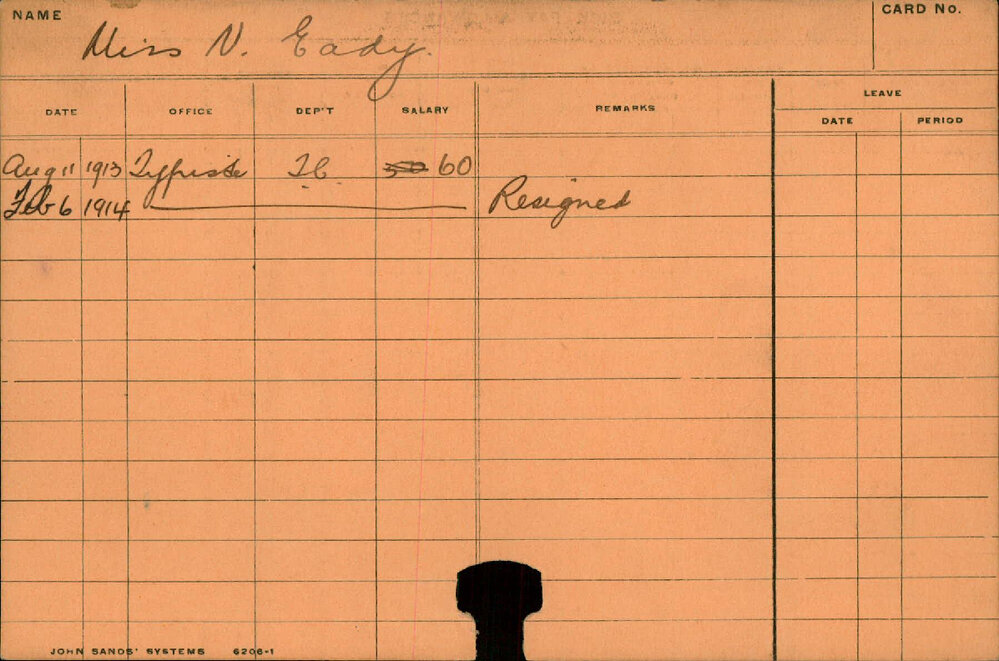 NAME Miss V. Eady. CARD No.
LEAVE
DATE OFFICE DEP'T SALARY REMARKS DATE PERIOD
Aug 11 1913 Typiste 50 60
Feb 6 1914 Resigned
JOHN SANDS' SYSTEMS 6206-1